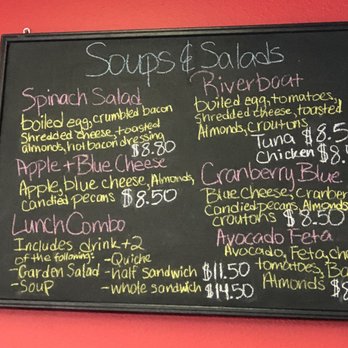 Soups & Salads
Spinach Salad
boiled egg, crumbled bacon
shredded cheese, toasted
almonds, hot bacon dressing
$8.80
Apple + Blue Cheese
Apple, blue cheese, Almonds,
candied pecans $8.50
Lunch Combo
Includes drink + 2
of the following:
-Garden Salad
-Soup
-Quiche
-half sandwich $11.50
-whole sandwich $14.50
Riverboat
boiled egg, tomatoes,
shredded cheese, toasted
Almonds, croutons
Tuna $8.5
Chicken $8.
Cranberry Blue
Blue cheese, Cranber
Candied pecans, Almonds
croutons $8.50
Avocado Feta
Avocado, Feta, ch
tomatoes, Ba
Almonds $8